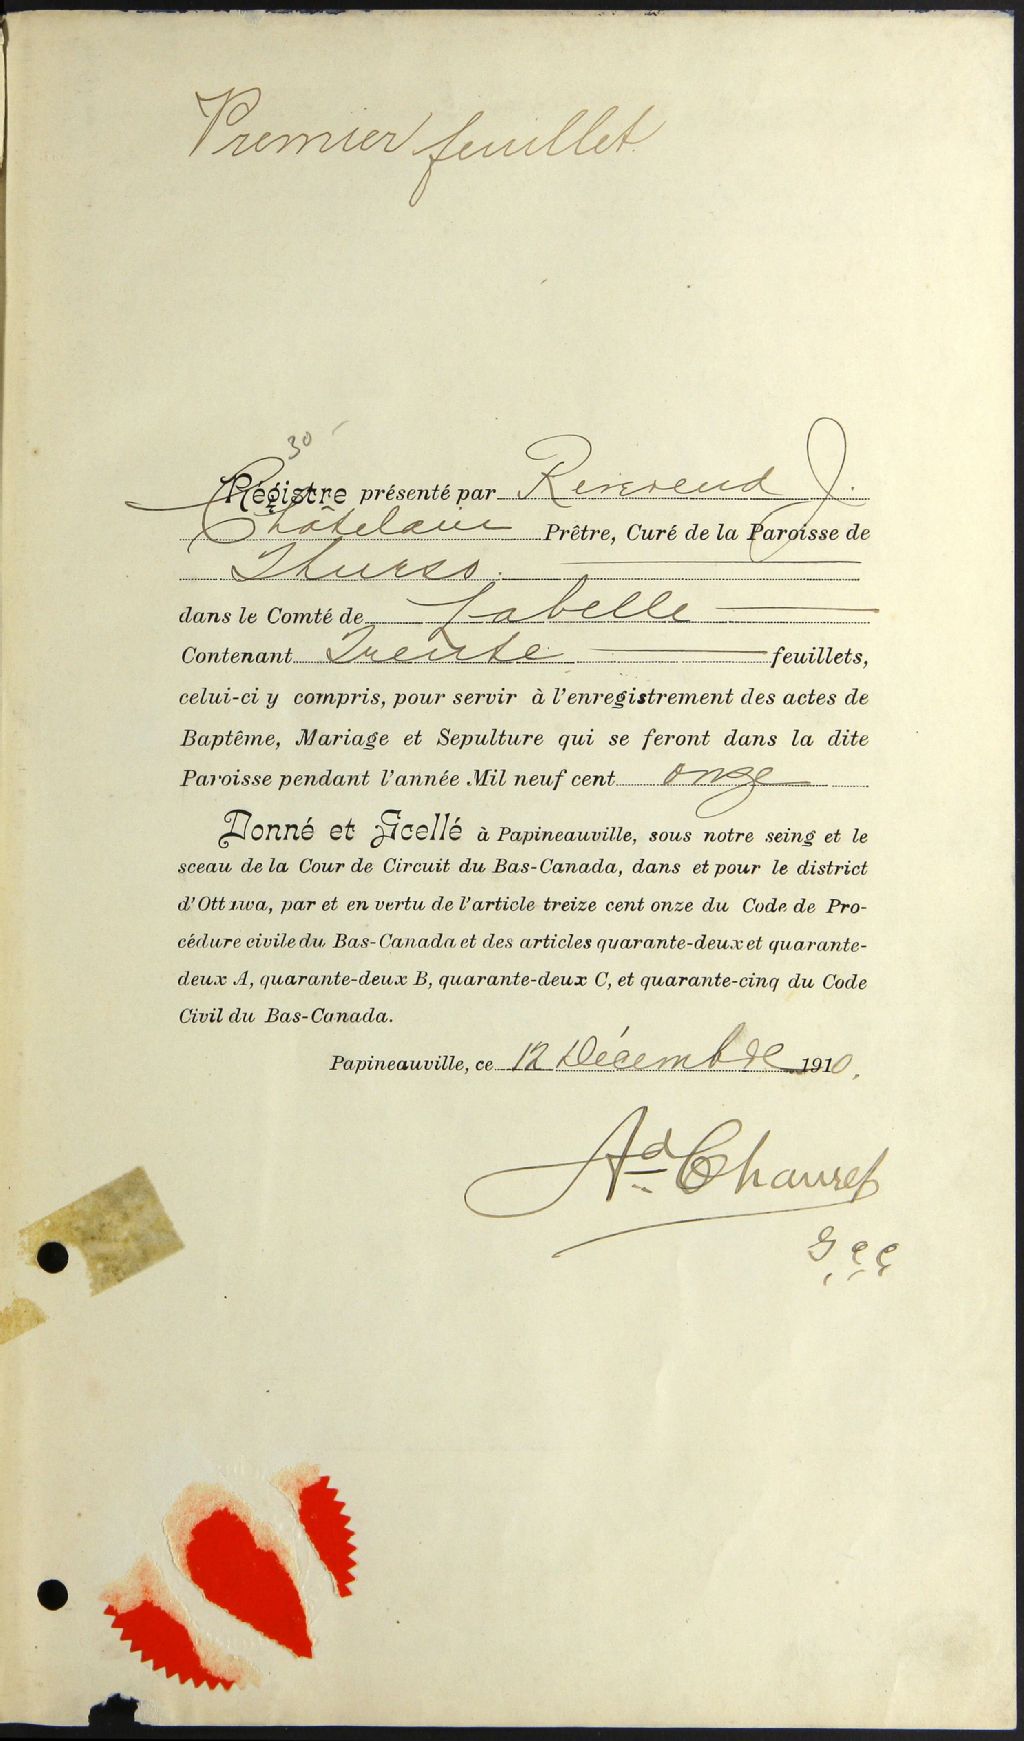 Premier feuillet
30
Régistre présenté par Révérend J.
Châtelain Prêtre, Curé de la Paroisse de
Thurso.
dans le Comté de Labelle
Contenant Trente feuillets,
celui-ci y compris, pour servir à l'enregistrement des actes de
Baptême, Mariage et Sepulture qui se feront dans la dite
Paroisse pendant l'année Mil neuf cent onze
Donné et Scellé à Papineauville, sous notre seing et le
sceau de la Cour de Circuit du Bas-Canada, dans et pour le district
d'Ottawa, par et en vertu de l'article treize cent onze du Code de Pro-
cédure civile du Bas-Canada et des articles quarante-deux et quarante-
deux A, quarante-deux B, quarante-deux C, et quarante-cinq du Code
Civil du Bas-Canada.
Papineauville, ce 12 Décembre 1910.
Ad Chauret
G C C